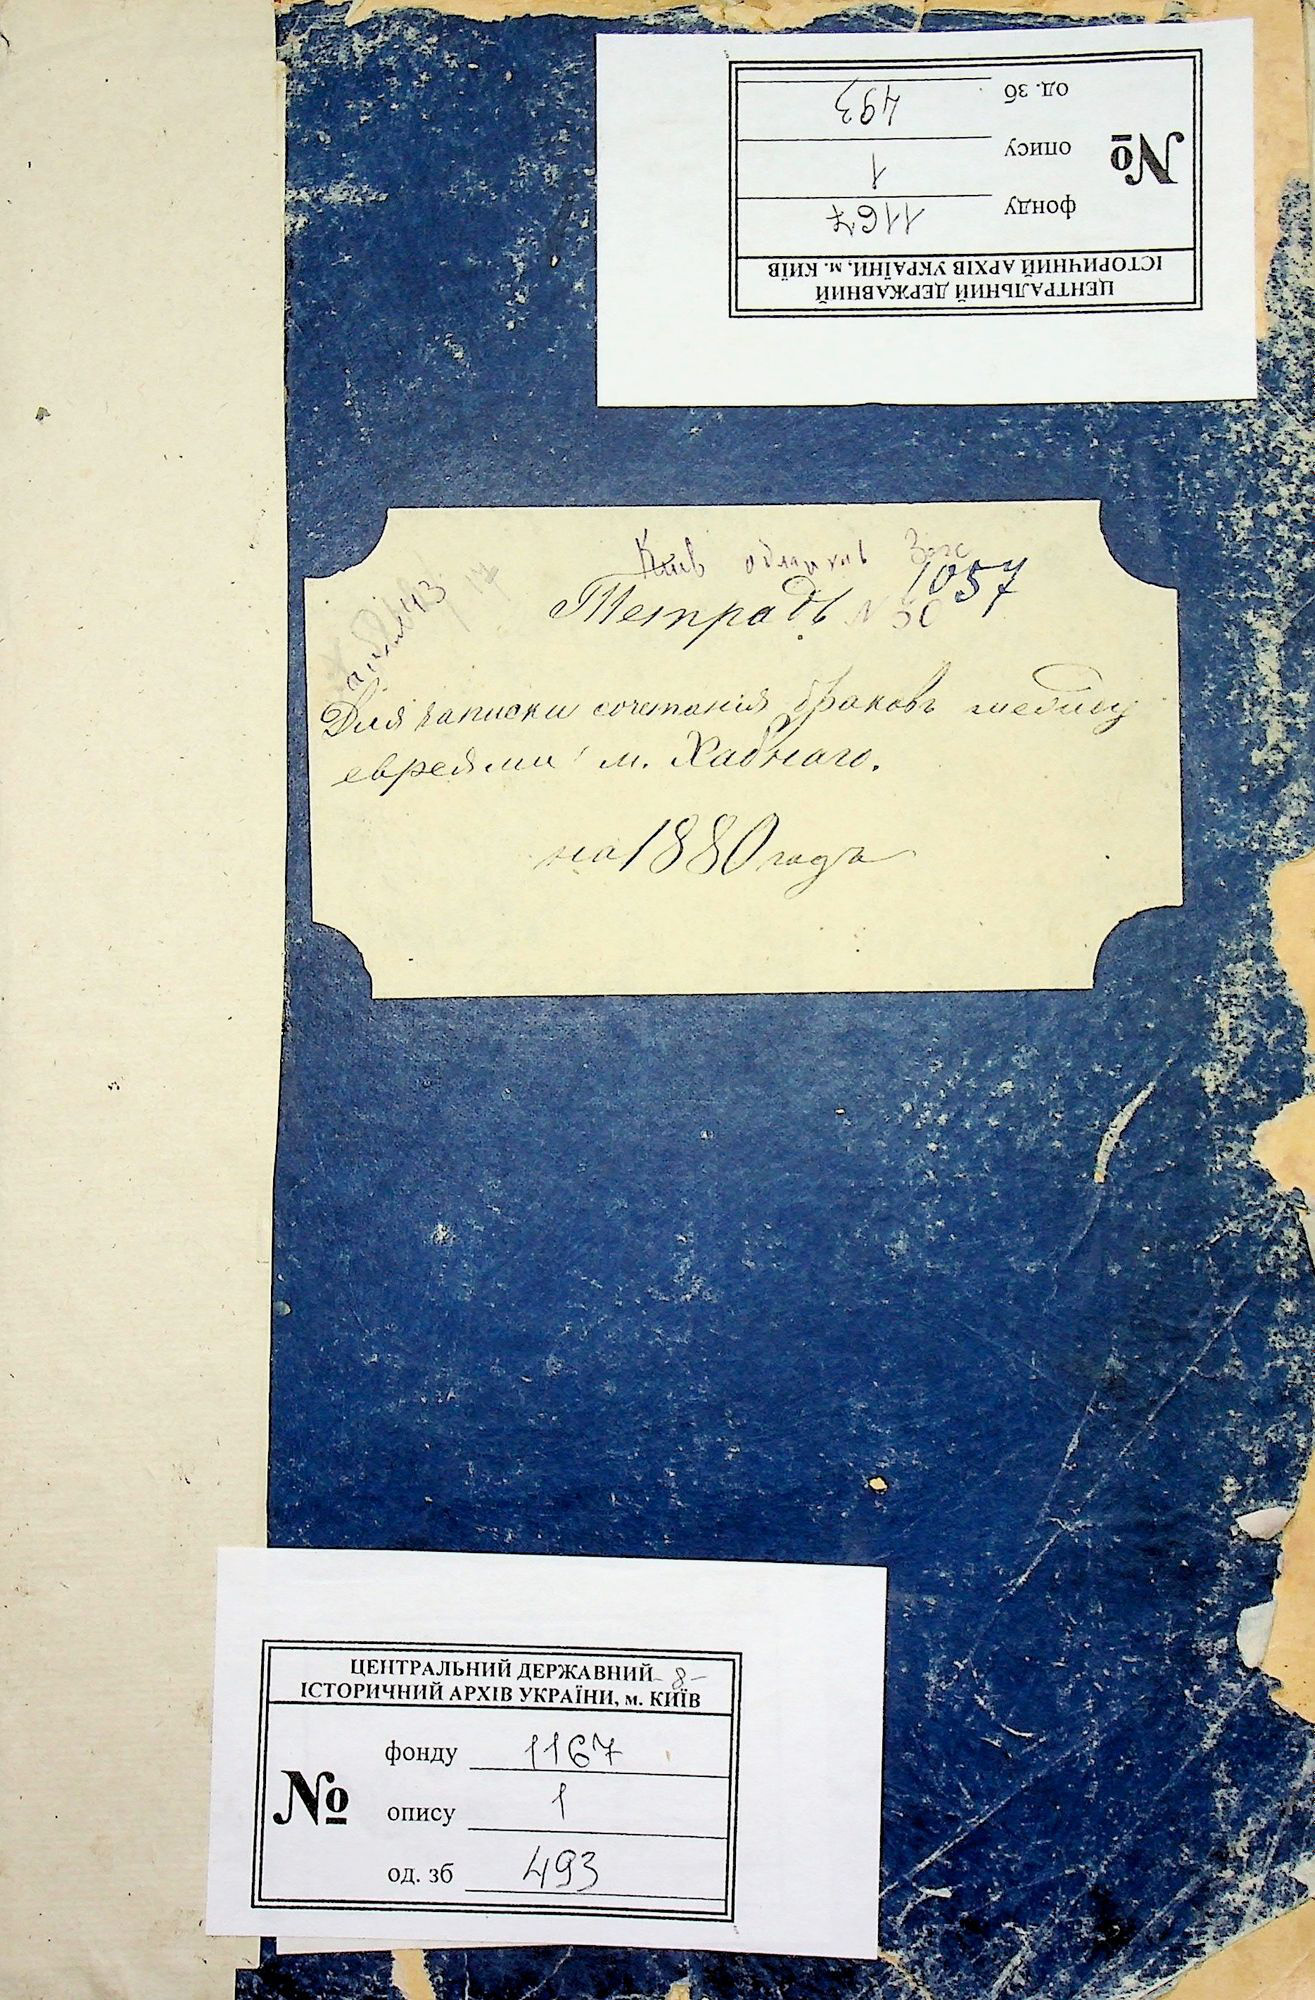 ЦЕНТРАЛЬНИЙ ДЕРЖАВНИЙ
ІСТОРИЧНИЙ АРХІВ УКРАЇНИ, м. КИЇВ
№
фонду 1167
опису 1
од. зб 493
Київ
1057
Тетрадь N 50
Для записки сочетанія браковъ между
евреями м. Хабнаго.
на 1880 годъ
ЦЕНТРАЛЬНИЙ ДЕРЖАВНИЙ
-8-
ІСТОРИЧНИЙ АРХІВ УКРАЇНИ, м. КИЇВ
№
фонду 1167
опису 1
од. зб 493